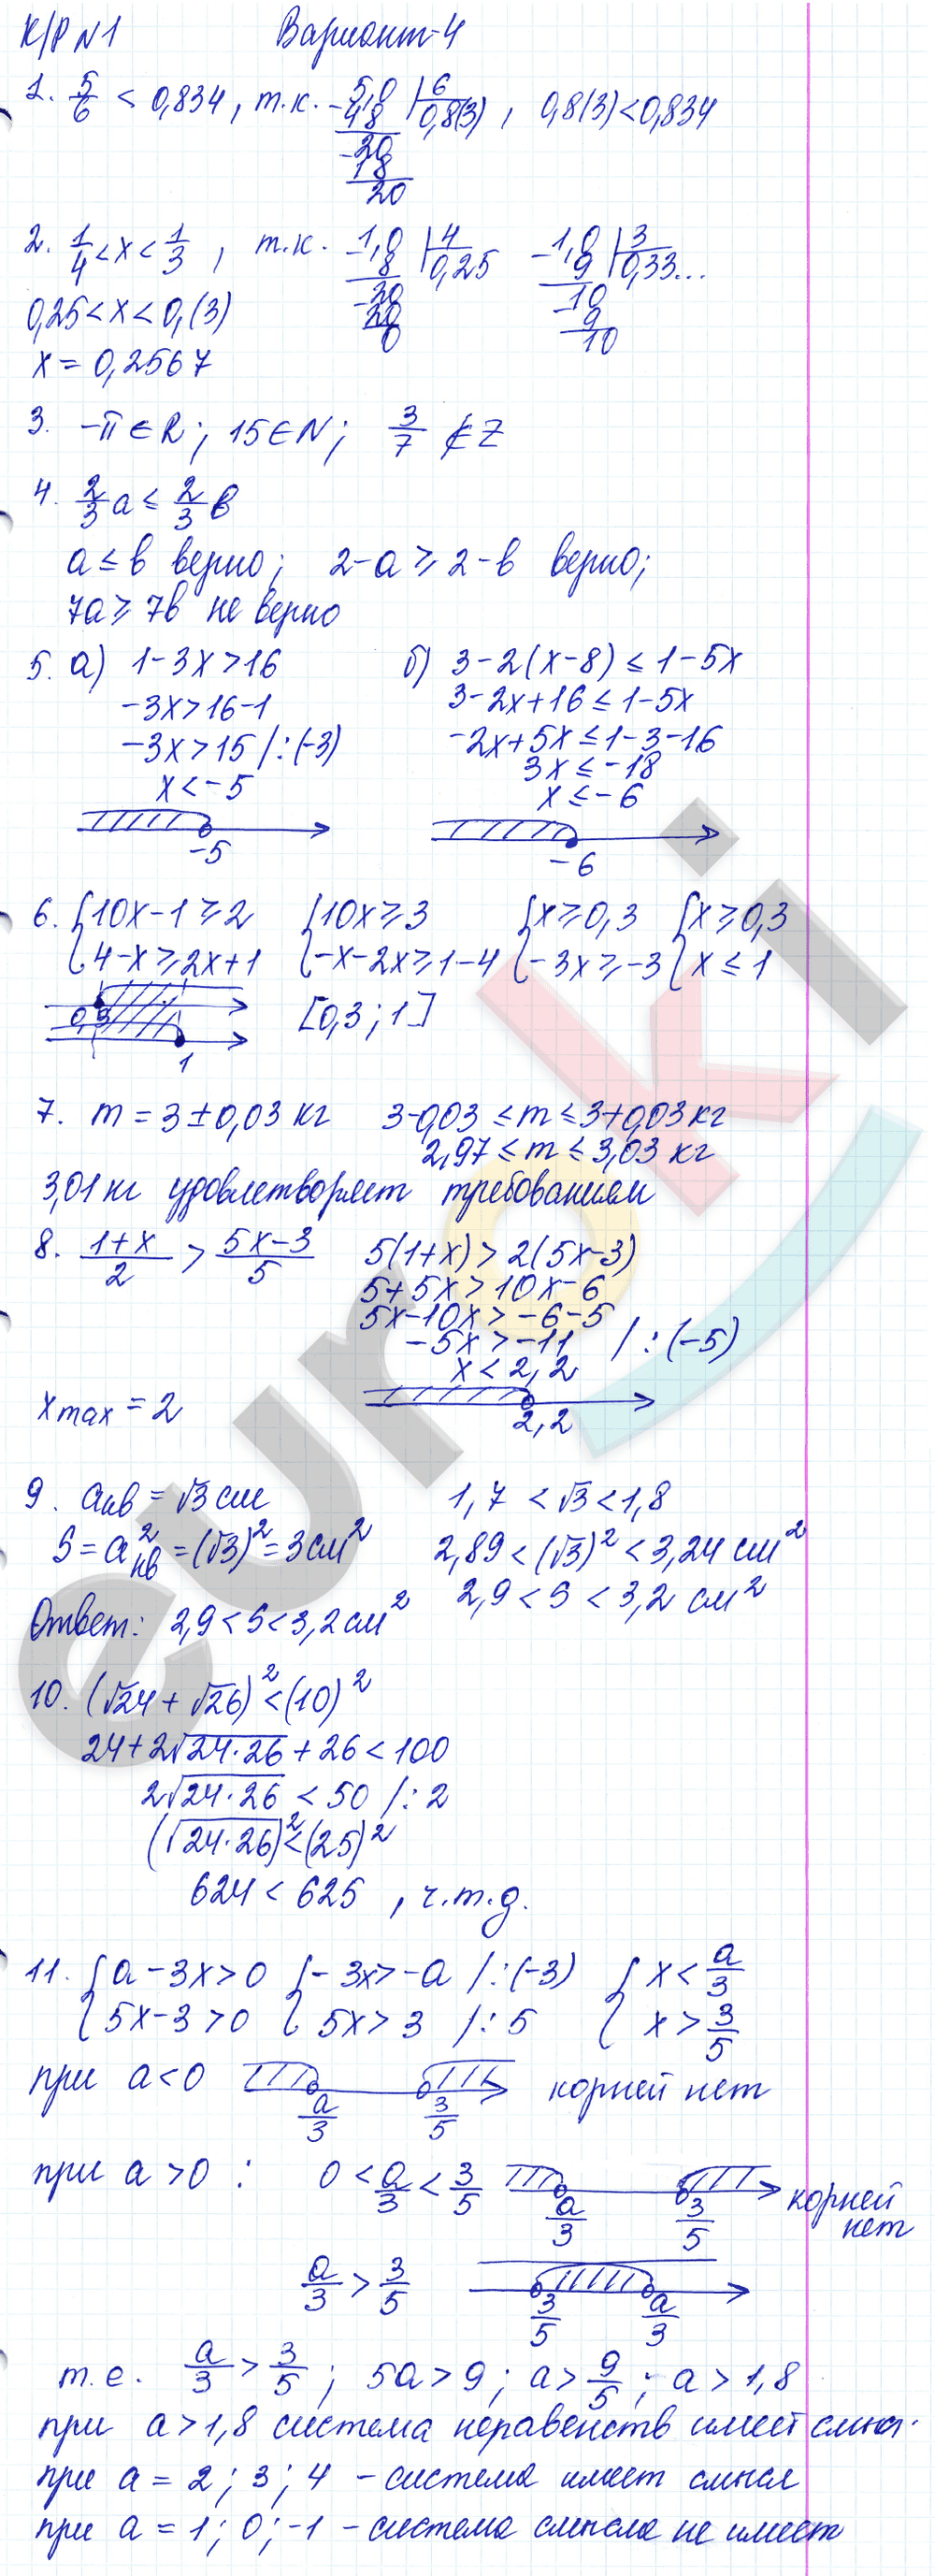 К/Р N1 Вариант-4
1. 5/6 < 0,834, т.к. -5,0 |6 0,8(3), 0,8(3)<0,834
48
-20
18
20
2. 1/4 < x < 1/3, т.к. -1,0 |4 0,25 -1,0 |3 0,33...
8 9
0,25 < x < 0,(3) -20 -10
20 9
0 10
x = 0,2567
3. -π ∈ R; 15 ∈ N; 3/7 ∉ Z
4. 2/3 a ≤ 2/3 в
a ≤ в верно; 2-a ⩾ 2-в верно;
7a ⩾ 7в не верно
5. а) 1-3x>16 б) 3-2(x-8) ≤ 1-5x
-3x>16-1 3-2x+16 ≤ 1-5x
-3x>15 /:(-3) -2x+5x ≤ 1-3-16
3x ≤ -18
x < -5 x ≤ -6
-5 -6
6. {10x-1 ⩾ 2 {10x ⩾ 3 {x ⩾ 0,3 {x ⩾ 0,3
{4-x ⩾ 2x+1 {-x-2x ⩾ 1-4 {-3x ⩾ -3 {x ≤ 1
0,3 [0,3; 1]
1
7. m = 3 ± 0,03 кг 3-0,03 ≤ m ≤ 3+0,03 кг
2,97 ≤ m ≤ 3,03 кг
3,01 кг удовлетворяет требованиям
8. 1+x/2 > 5x-3/5 5(1+x) > 2(5x-3)
5+5x > 10x-6
5x-10x > -6-5
-5x > -11 /:(-5)
x < 2,2
xmax = 2 2,2
9. aкв = √3 см 1,7 < √3 < 1,8
S = a²кв = (√3)² = 3 см² 2,89 < (√3)² < 3,24 см²
2,9 < S < 3,2 см²
Ответ: 2,9 < S < 3,2 см²
10. (√24 + √26)² < (10)²
24 + 2√24·26 + 26 < 100
2√24·26 < 50 /:2
(√24·26)² < (25)²
624 < 625, ч.т.д.
11. {a-3x>0 {-3x>-a /:(-3) {x < a/3
{5x-3>0 {5x>3 /:5 {x > 3/5
при a<0 a/3 3/5 корней нет
при a>0: 0 < a/3 < 3/5 a/3 3/5 корней нет
a/3 > 3/5 3/5 a/3
т.е. a/3 > 3/5; 5a > 9; a > 9/5; a > 1,8
при a > 1,8 система неравенств имеет смысл.
при a = 2; 3; 4 - система имеет смысл
при a = 1; 0; -1 - система смысла не имеет
euroki